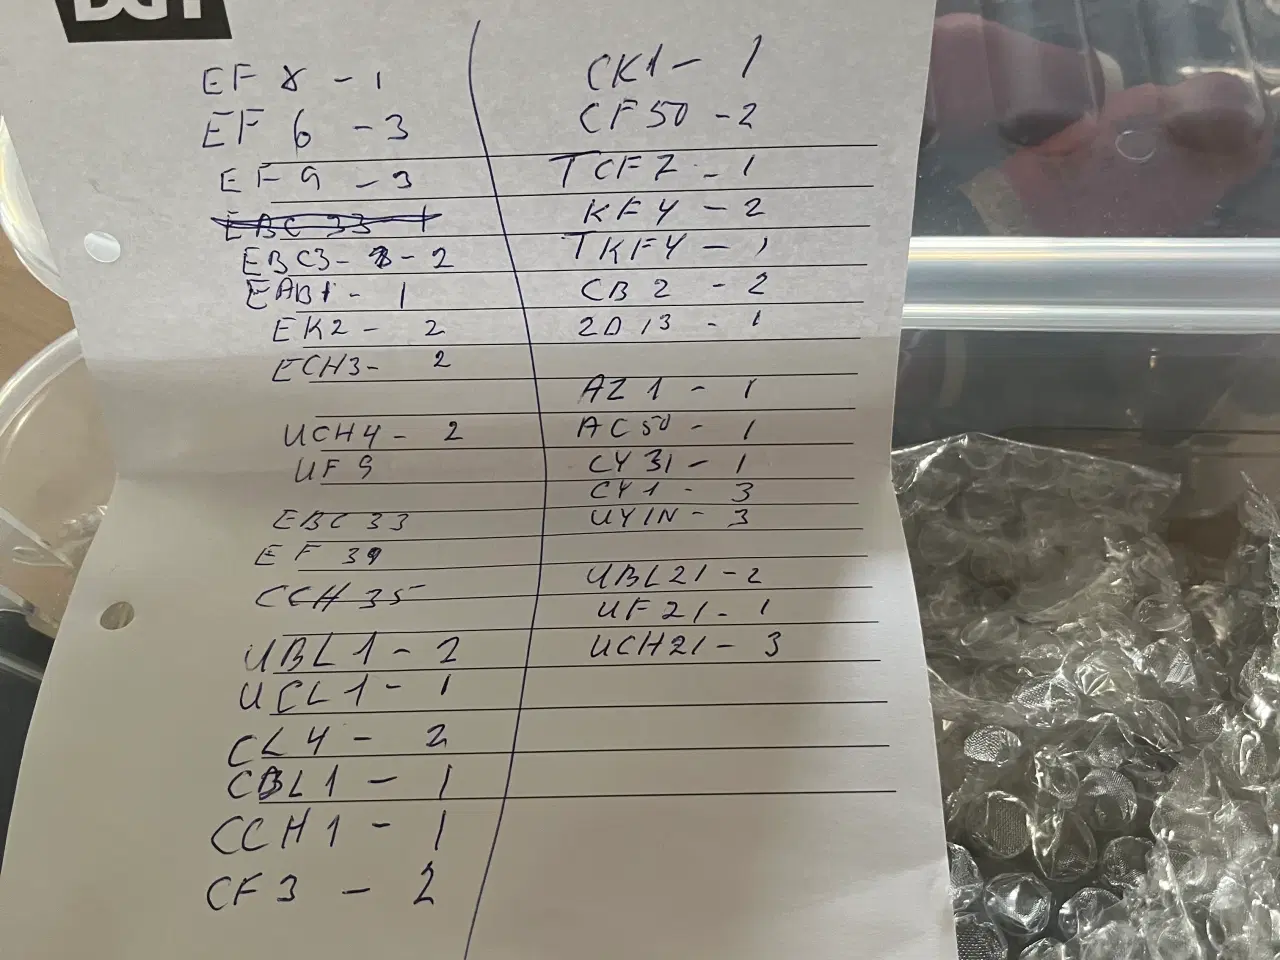 EF 8 - 1
EF 6 - 3
EF 9 - 3
EBC 33 1
EBC3 - 2
EAB1 - 1
EK2 - 2
ECH3 - 2
UCH4 - 2
UF 9
EBC 33
EF 39
CCH 35
UBL1 - 2
UCL1 - 1
CL4 - 2
CBL1 - 1
CCH1 - 1
CF3 - 2
CK1 - 1
CF50 - 2
TCF7 - 1
KF4 - 2
TKF4 - 1
CB2 - 2
2D13 - 1
AZ1 - 1
AC50 - 1
CY31 - 1
CY1 - 3
UY1N - 3
UBL21 - 2
UF21 - 1
UCH21 - 3